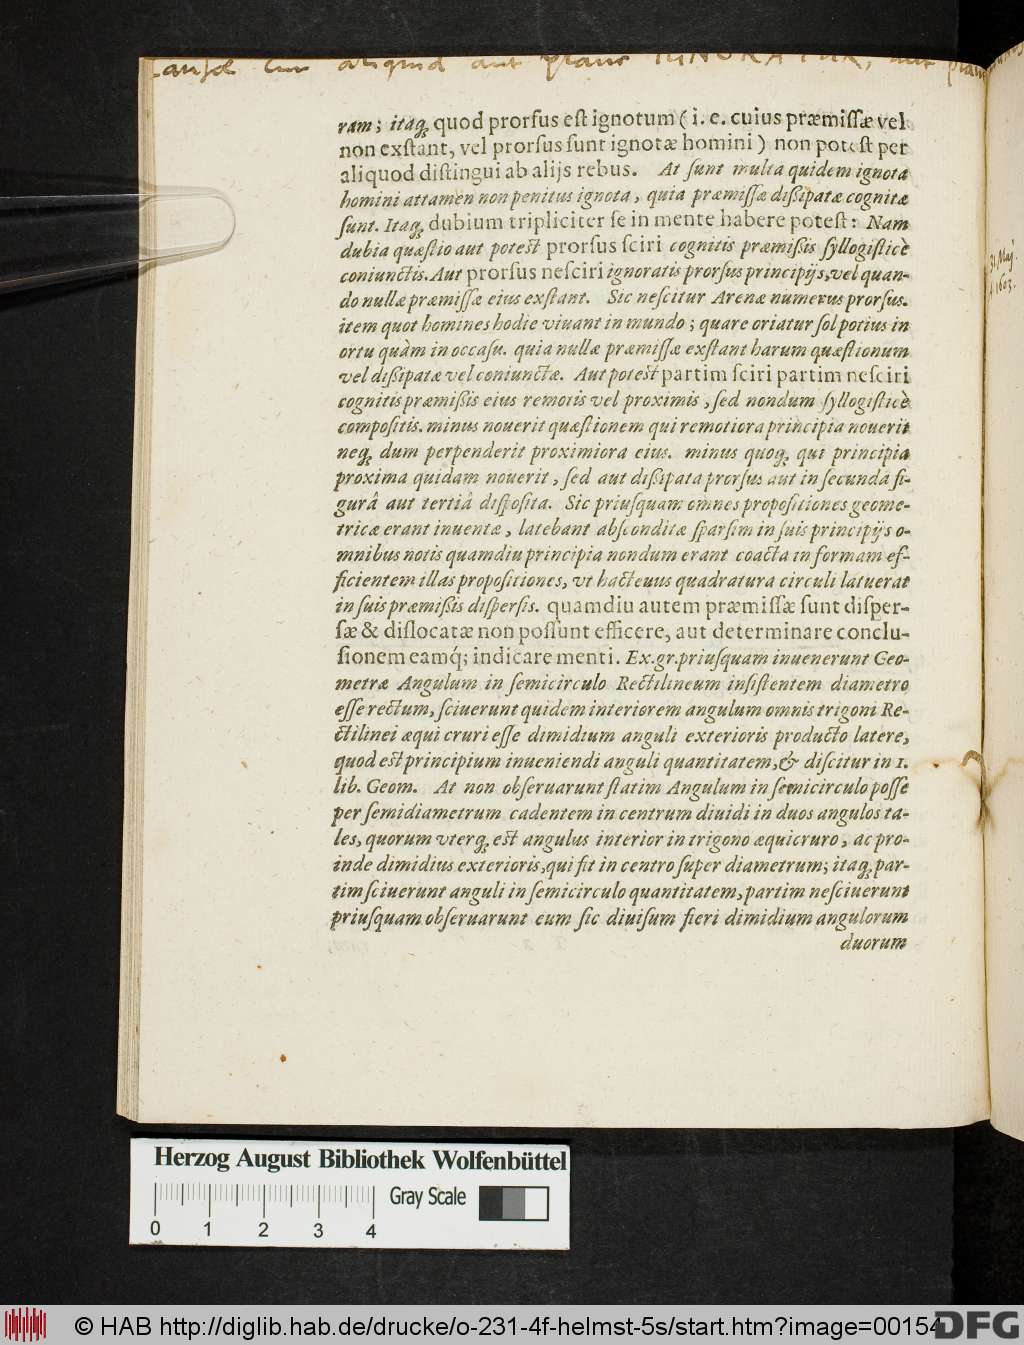 causæ cur aliquid aut plane IGNORATUR, aut plane
ram; itaq; quod prorſus eſt ignotum ( i. e. cuius præmiſſæ vel
non exſtant, vel prorſus ſunt ignotæ homini ) non poteſt per
aliquod diſtingui ab alijs rebus. At ſunt multa quidem ignota
homini attamen non penitus ignota, quia præmiſſæ dißipatæ cognitæ
ſunt. Itaq; dubium tripliciter ſe in mente habere poteſt: Nam
dubia quæſtio aut poteſt prorſus ſciri cognitis præmißis ſyllogiſticè
coniunctis. Aut prorſus neſciri ignoratis prorſus principijs, vel quan-
do nullæ præmiſſæ eius exſtant. Sic neſcitur Arenæ numerus prorſus.
item quot homines hodie viuant in mundo; quare oriatur ſol potius in
ortu quàm in occaſu. quia nullæ præmiſſæ exſtant harum quæſtionum
vel dißipatæ vel coniunctæ. Aut poteſt partim ſciri partim neſciri
cognitis præmißis eius remotis vel proximis, ſed nondum ſyllogiſticè
compoſitis. minus nouerit quæſtionem qui remotiora principia nouerit
neq; dum perpenderit proximiora eius. minus quoq; qui principia
proxima quidam nouerit, ſed aut dißipata prorſus aut in ſecundâ fi-
gurâ aut tertiâ diſpoſita. Sic priuſquam omnes propoſitiones geome-
tricæ erant inuentæ, latebant abſconditæ ſparſim in ſuis principijs o-
mnibus notis quamdiu principia nondum erant coacta in formam ef-
ficientem illas propoſitiones, vt hactenus quadratura circuli latuerat
in ſuis præmißis diſperſis. quamdiu autem præmiſſæ ſunt diſper-
ſæ & diſlocatæ non poſſunt efficere, aut determinare conclu-
ſionem eamq́; indicare menti. Ex. gr. priuſquam inuenerunt Geo-
metræ Angulum in ſemicirculo Rectilineum inſiſtentem diametro
eſſe rectum, ſciuerunt quidem interiorem angulum omnis trigoni Re-
ctilinei æqui cruri eſſe dimidium anguli exterioris producto latere,
quod eſt principium inueniendi anguli quantitatem, & diſcitur in 1.
lib. Geom. At non obſeruarunt ſtatim Angulum in ſemicirculo poſſe
per ſemidiametrum cadentem in centrum diuidi in duos angulos ta-
les, quorum vterq; eſt angulus interior in trigono æquicruro, ac pro-
inde dimidius exterioris, qui fit in centro ſuper diametrum; itaq; par-
tim ſciuerunt anguli in ſemicirculo quantitatem, partim neſciuerunt
priuſquam obſeruarunt eum ſic diuiſum fieri dimidium angulorum
duorum
31. Maj.
A 1603.
Herzog August Bibliothek Wolfenbüttel
Gray Scale
0 1 2 3 4
© HAB http://diglib.hab.de/drucke/o-231-4f-helmst-5s/start.htm?image=00154
DFG